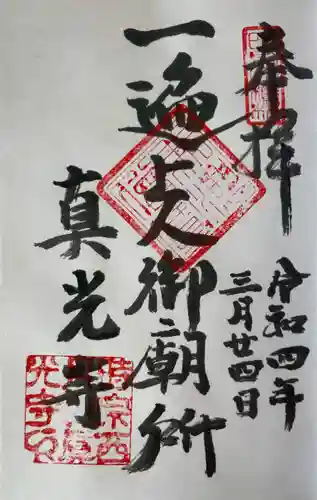 奉拝
令和四年
三月廿四日
一遍上人御廟所
真光寺